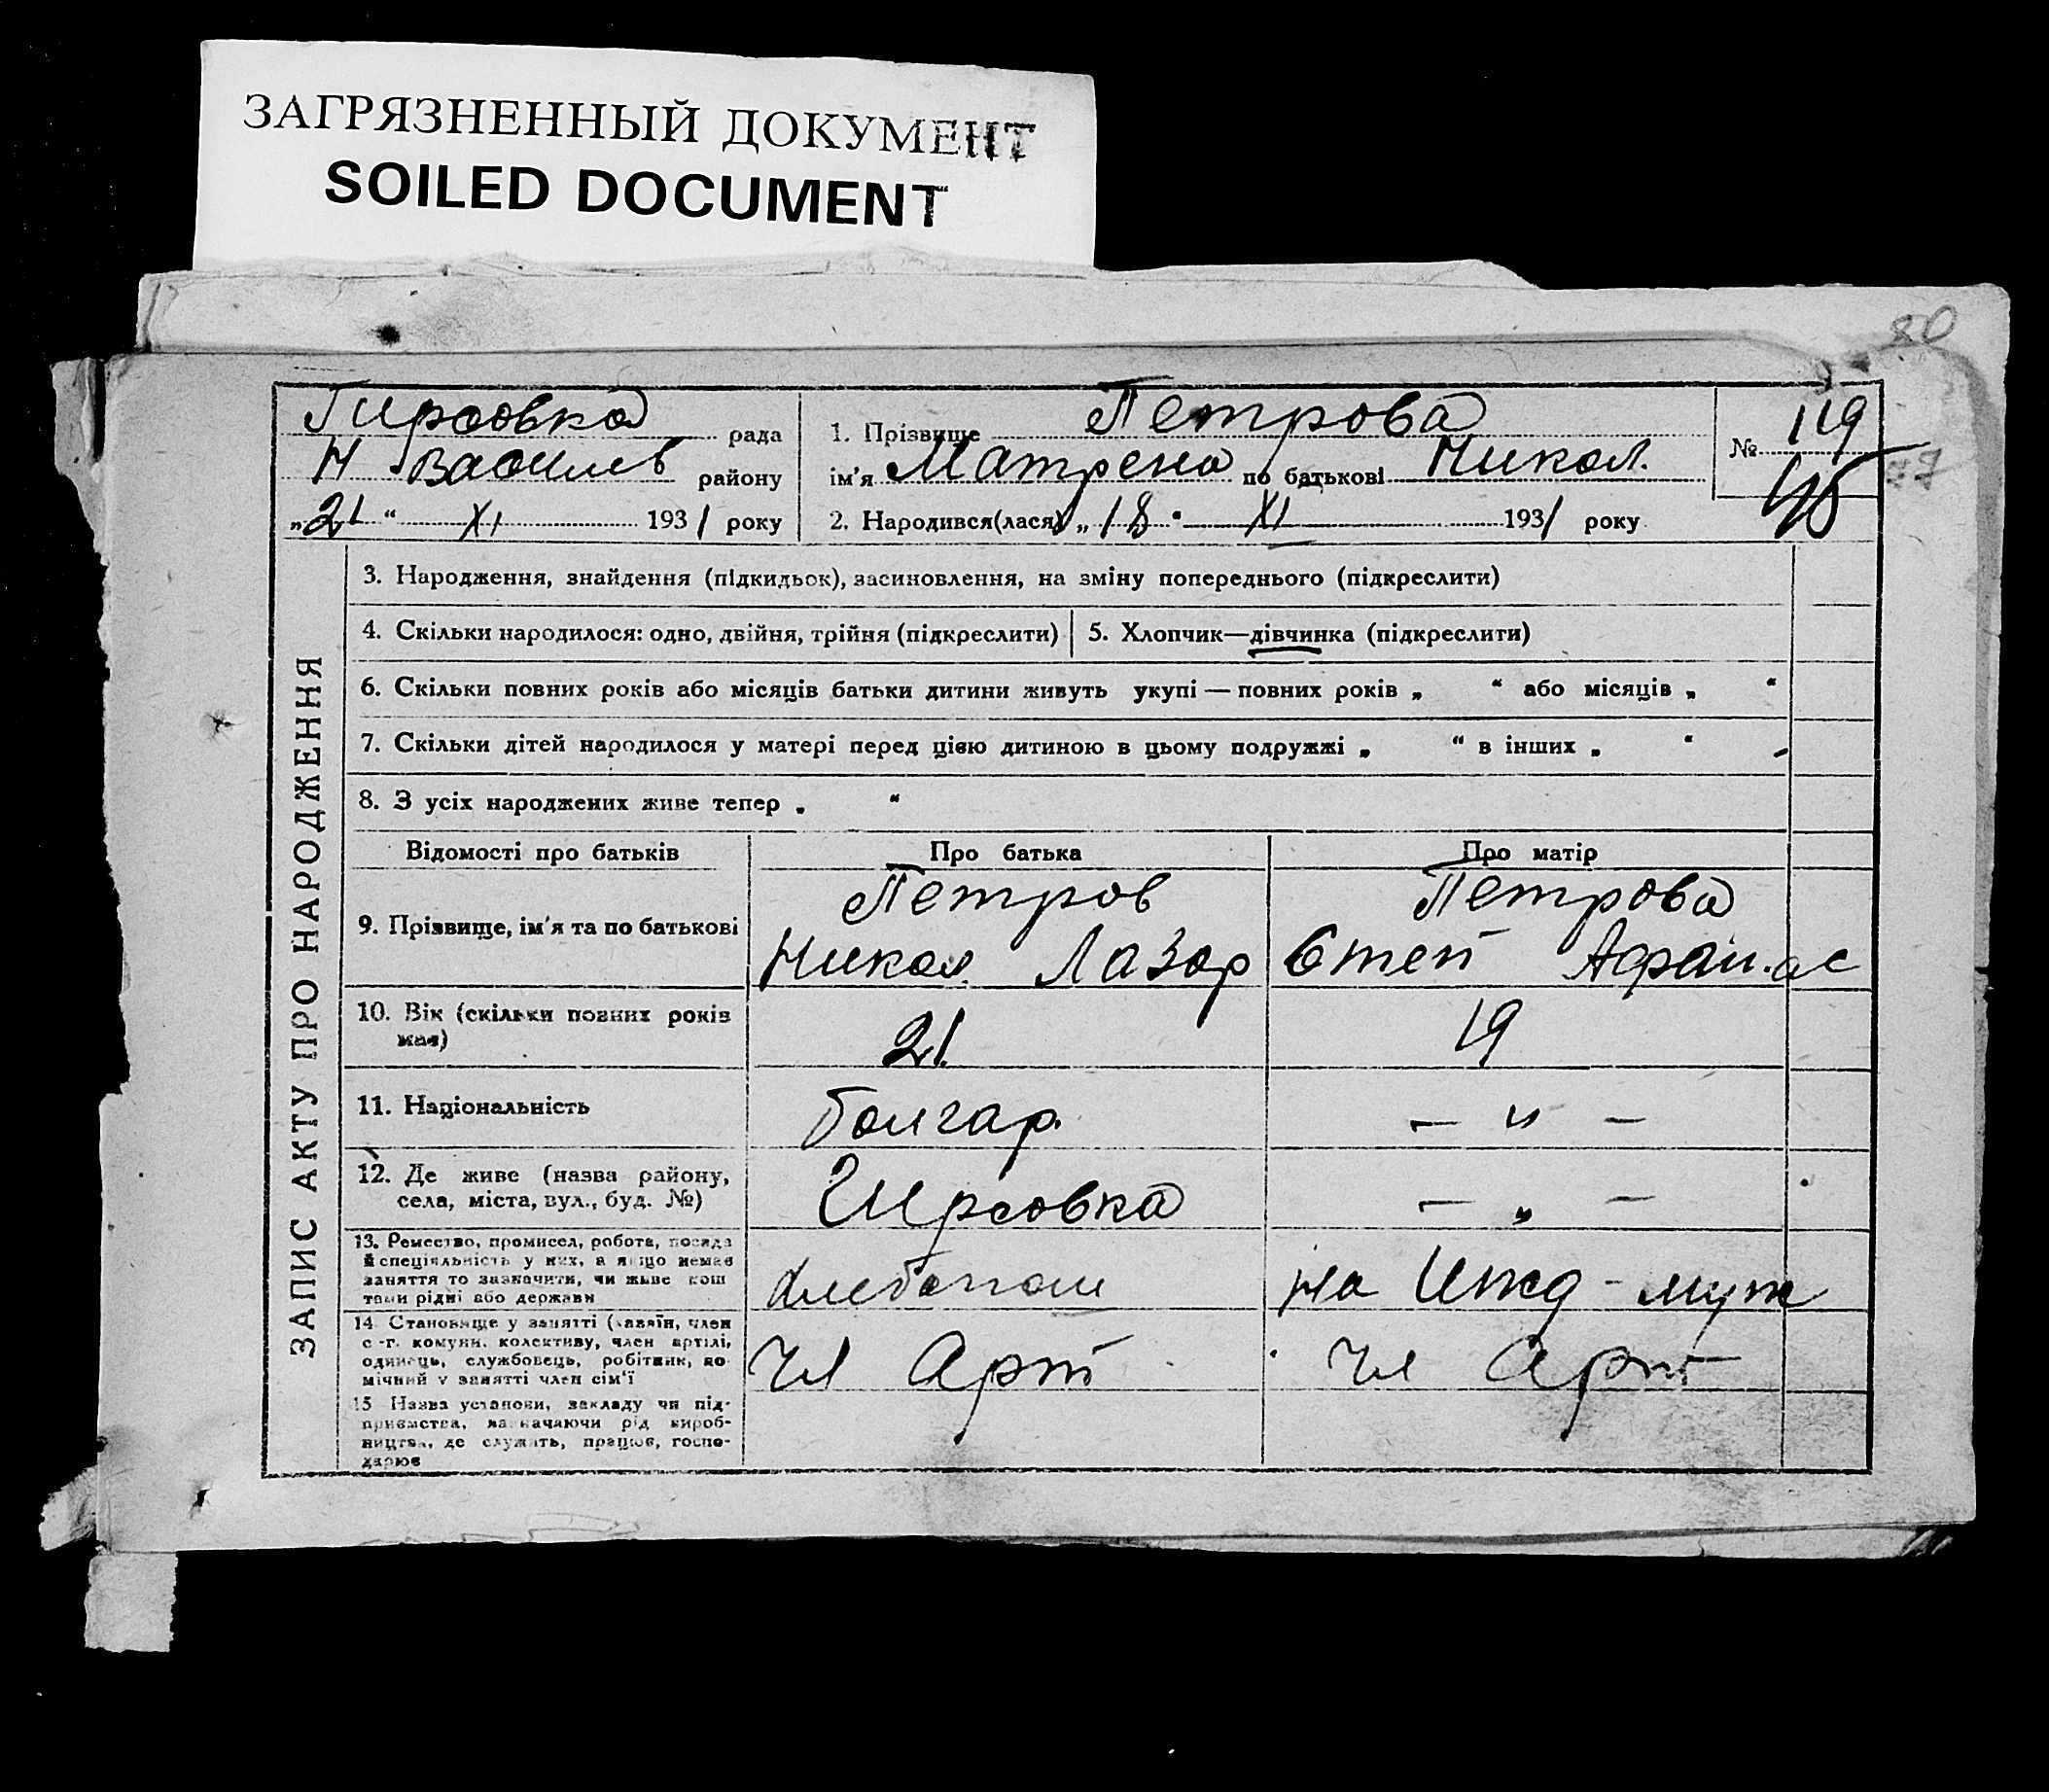 ЗАГРЯЗНЕННЫЙ ДОКУМЕНТ
SOILED DOCUMENT
80
Гирсовка рада
Н Василів району
„21“ XI 1931 року
1. Прізвище Петрова
ім'я Матрена по батькові Никол.
2. Народився(лася) „18" XI 1931 року
№ 119
45
ЗАПИС АКТУ ПРО НАРОДЖЕННЯ
3. Народження, знайдення (підкидьок), засиновлення, на зміну попереднього (підкреслити)
4. Скільки народилося: одно, двійня, трійня (підкреслити) 5. Хлопчик—дівчинка (підкреслити)
6. Скільки повних років або місяців батьки дитини живуть укупі — повних років „ “ або місяців „ “
7. Скільки дітей народилося у матері перед цією дитиною в цьому подружжі „ “ в інших „ “
8. З усіх народжених живе тепер „ “
Відомості про батьків Про батька Про матір
9. Прізвище, ім'я та по батькові
Петров
Никол. Лазар
Петрова
Степ Афан.ас
10. Вік (скільки повних років
має)
21. 19
11. Національність болгар. — „ —
12. Де живе (назва району,
села, міста, вул., буд. №)
Гирсовка — „ —
13. Ремество, промисел, робота, посада
й спеціяльність у них, а якщо немає
заняття то зазначити, чи живе кош
тами рідні або держави
хлебопаш на Ижд - муж
14. Становище у занятті (хазяїн, член
с.-г. комуни, колективу, член артілі,
одинець, службовець, робітник, по
мічний у занятті член сім'ї
Чл Арт Чл Арт
15 Назва установи, закладу чи під-
приємства, зазначаючи рід вироб-
ництва, де служить, працює, госпо-
дарює